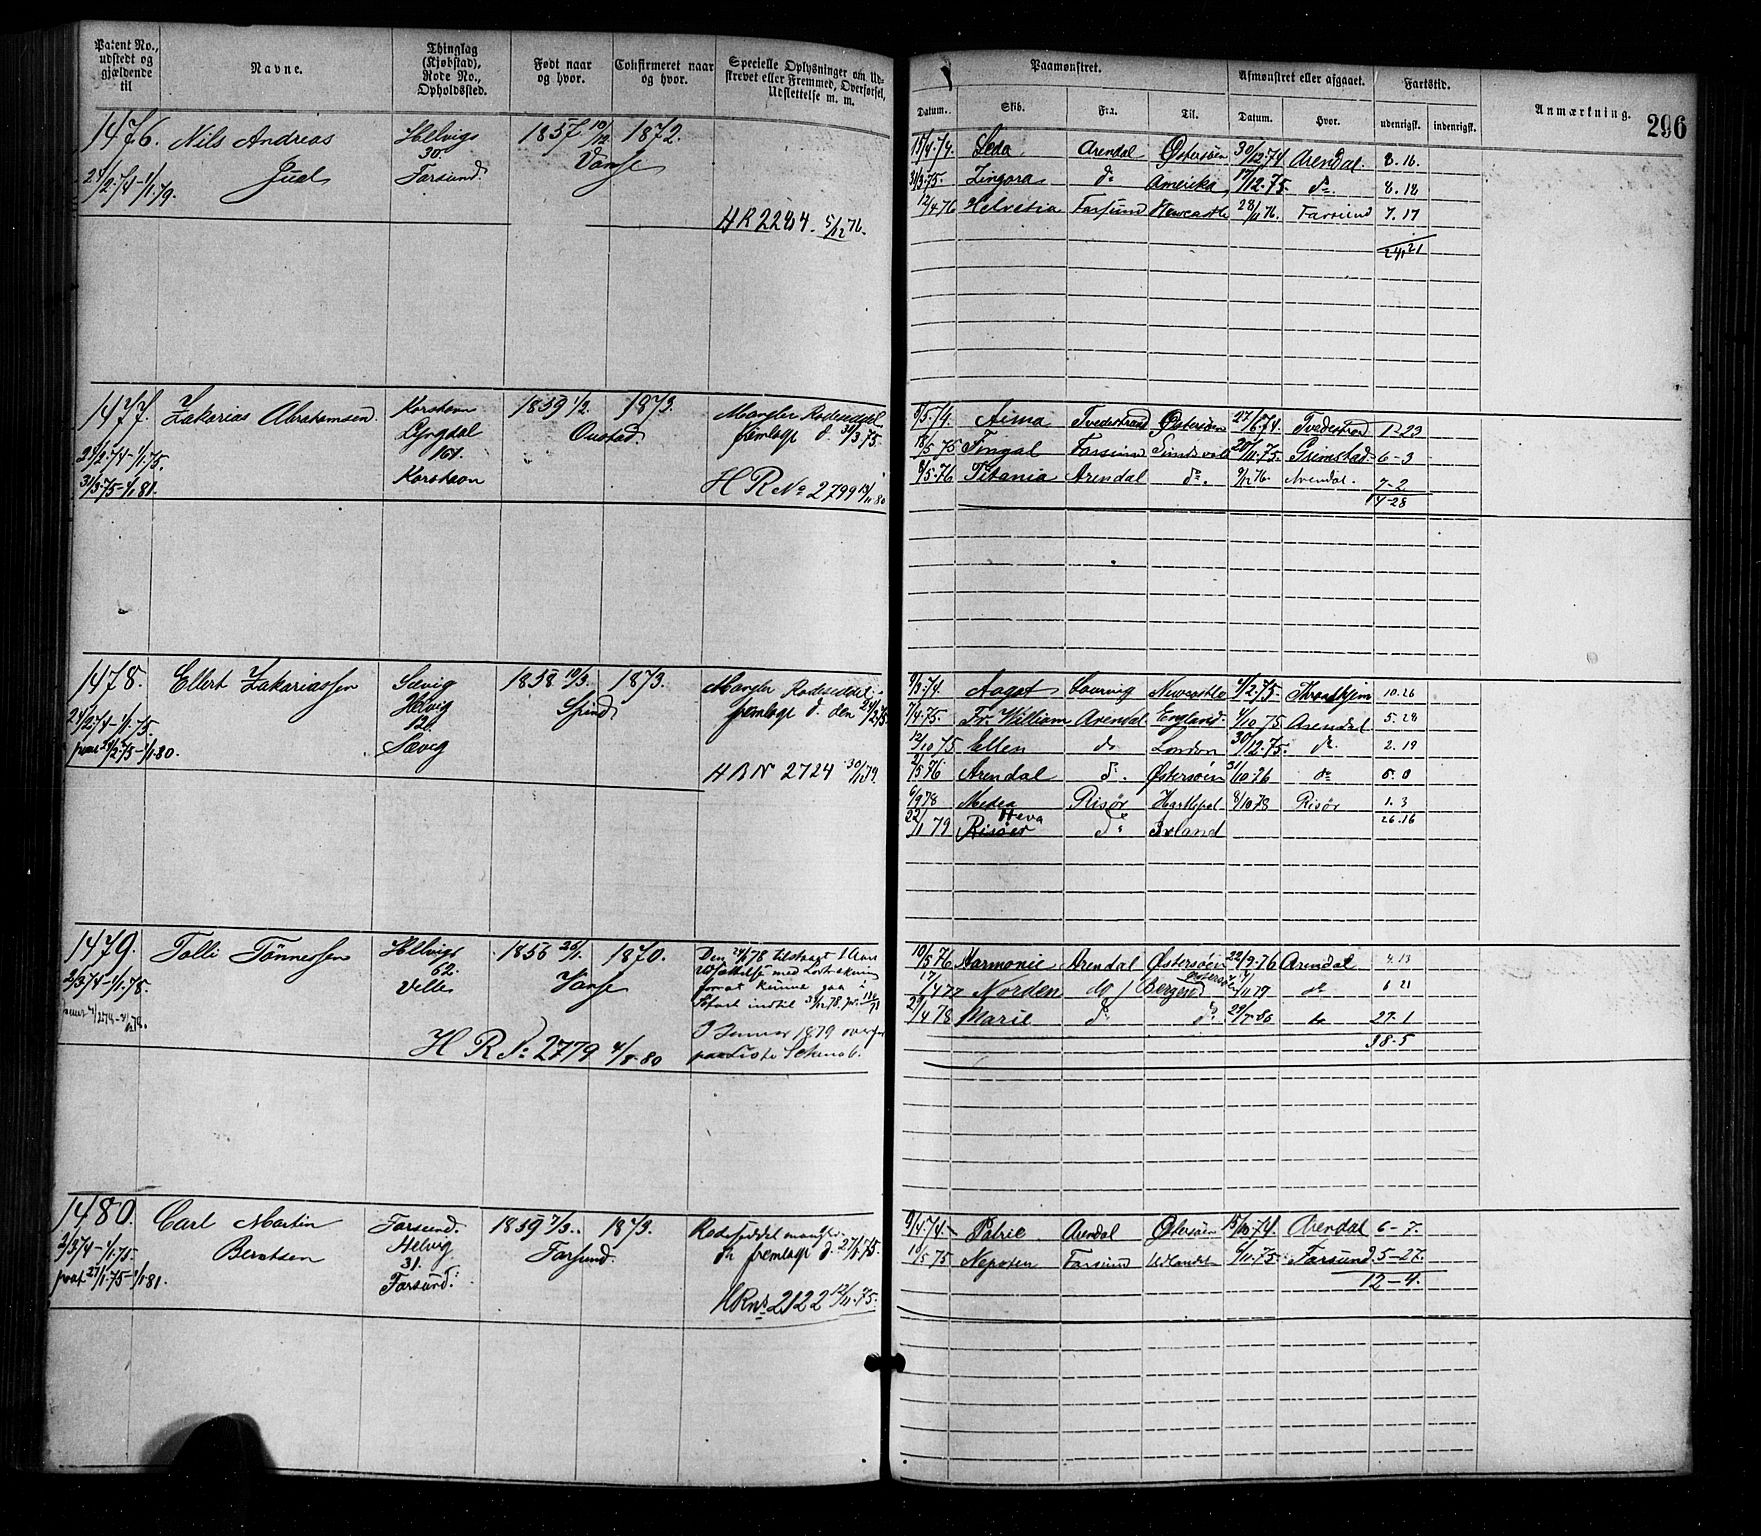 Patent No., udstedt og gjældende til
Navne.
Thinglag (Kjøbstad), Rode No., Opholdssted.
Født naar og hvor.
Confirmeret naar og hvor.
Specielle Oplysninger om Udstrevet eller Fremmed, Overførsel, Udslettelse m. m.
Paamønstret.
Afmønstret eller afgaaet.
Fartstid.
Anmærkning.
296
Datum. Skib. Fra. Til. Datum. Hvor. udenrigsk. indenrigsk.
1476. Nils Andreas Helvigs 1857 10/12 1872.
30. Vanse
24/2.74-1/1.79. Juel Farsund.
HR 2284. 5/12 76.
15/4.74. Leda Arendal Østersøen 30/12.74 Arendal 8.16.
31/3.75. Zingara do Amerika 17/12.75. do 8.18
12/4.76 Helvetia Farsund Newcastle 28/11 76. Farsund 7.17
24.21
1477. Zakarias Abrahamsen Korshavn 1859 1/2. 1873. Mangler Rodeseddel
Lyngdal Oustad fremlagt d. 31/3.75.
24/2.74-1/1.75. 161.
31/3.75-1/1.81. Korshavn H R No 2799 13/11 80
5/5.74. Alma Tvedestrand Østersøen 27/6.74. Tvedestrand 1-23
18/5 75 Fingal Farsund Sundsvall 20/11.75. Grimstad 6-3
8/5.76 Titania Arendal do. 9/12 76. Arendal. 7-2
14-28
1478. Ellert Zakariassen Sævig 1858 10/3. 1873. Mangler Rodeseddel
Helvig Spind fremlagt d. den 24/2 75
24/2.74-1/1.75. 121.
24/2.75-1/1.80. Sævig
H B No 2724 30/1 79.
9/3.74. Aagot Laurvig Newcastle 4/2.75. Throndhjem 10.26
7/4.75. Fr. William Arendal England. 4/10 75 Arendal 5.28
12/10 75 Ellen do London 30/12.75. do. 2.19
2/5 76 Arendal do. Østersøen 31/10 76 do 5.0
6/9 78 Medea Risør Hartlepol 8/10 78 Risør 1.3
26.16
22/1 79 Risøer Heva do Irland
1479. Tolli Tønnessen Helvigs 1856 26/1. 1870.
62. Vanse
2/3.74-1/1.78. Velle
H R No 2779 4/8-80
I Januar 1879 overført
paa Liste
10/5 76 Harmonie Arendal Østersøen 22/9.76 Arendal 4.13
17/4 77 Norden do Bergen Østersøen do 6 21
29/4 78 Marie do do 29/7.80 do 27.1
38-5
1480. Carl Martin Farsund. 1859 7/3. 1873. Rodeseddel mangler
Berntsen Helvig Farsund. fremlagt d. 27/1 75.
2/3.74-1/1.75 31.
27/1.75-1/1 81. Farsund.
HRNo 2122 12/11.75.
9/4.74. Patrie Arendal Østersøen 15/10.74. Arendal 6-7.
10/5 75 Nepoten Farsund Udlandet 6/11.75. Farsund. 5-27.
12-4.